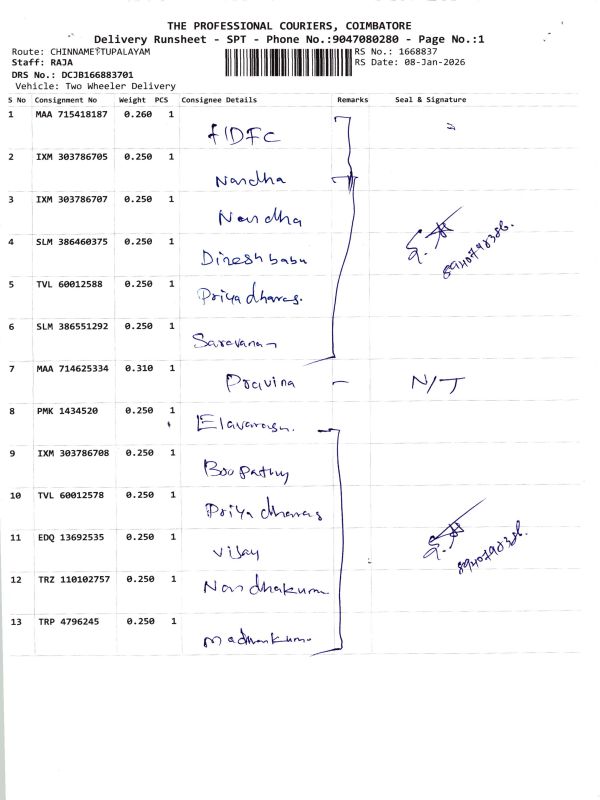 THE PROFESSIONAL COURIERS, COIMBATORE
Delivery Runsheet - SPT - Phone No.:9047080280 - Page No.:1
Route: CHINNAMETTUPALAYAM RS No.: 1668837
Staff: RAJA RS Date: 08-Jan-2026
DRS No.: DCJB166883701
Vehicle: Two Wheeler Delivery
S No Consignment No Weight PCS Consignee Details Remarks Seal & Signature
1 MAA 715418187 0.260 1 HDFC
2 IXM 303786705 0.250 1 Nandha
3 IXM 303786707 0.250 1 Nandha
4 SLM 386460375 0.250 1 Dinesh babu
5 TVL 60012588 0.250 1 Priya
6 SLM 386551292 0.250 1 Saravanan
7 MAA 714625334 0.310 1 Pravina - N/T
8 PMK 1434520 0.250 1 Elavarasu.
9 IXM 303786708 0.250 1 Boopathy
10 TVL 60012578 0.250 1 Priya
11 EDQ 13692535 0.250 1 Vijay
12 TRZ 110102757 0.250 1 Nandhakumar
13 TRP 4796245 0.250 1